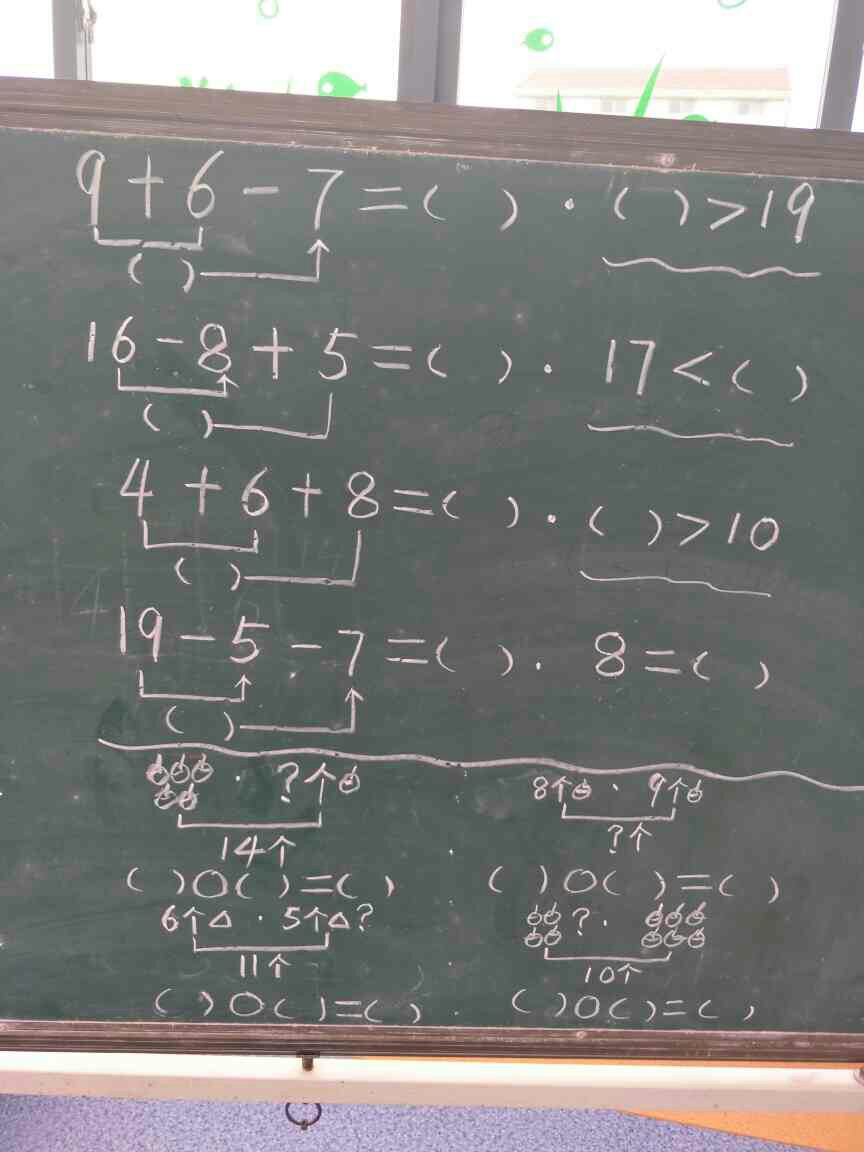 9+6-7=( ) · ( )>19
( )
16-8+5=( ) · 17<( )
( )
4+6+8=( ) · ( )>10
( )
19-5-7=( ) · 8=( )
( )
· ?个 8个 · 9个
14个 ?个
( )○( )=( ) ( )○( )=( )
6个△ · 5个△? ? ·
11个 10个
( )○( )=( ) · ( )○( )=( )